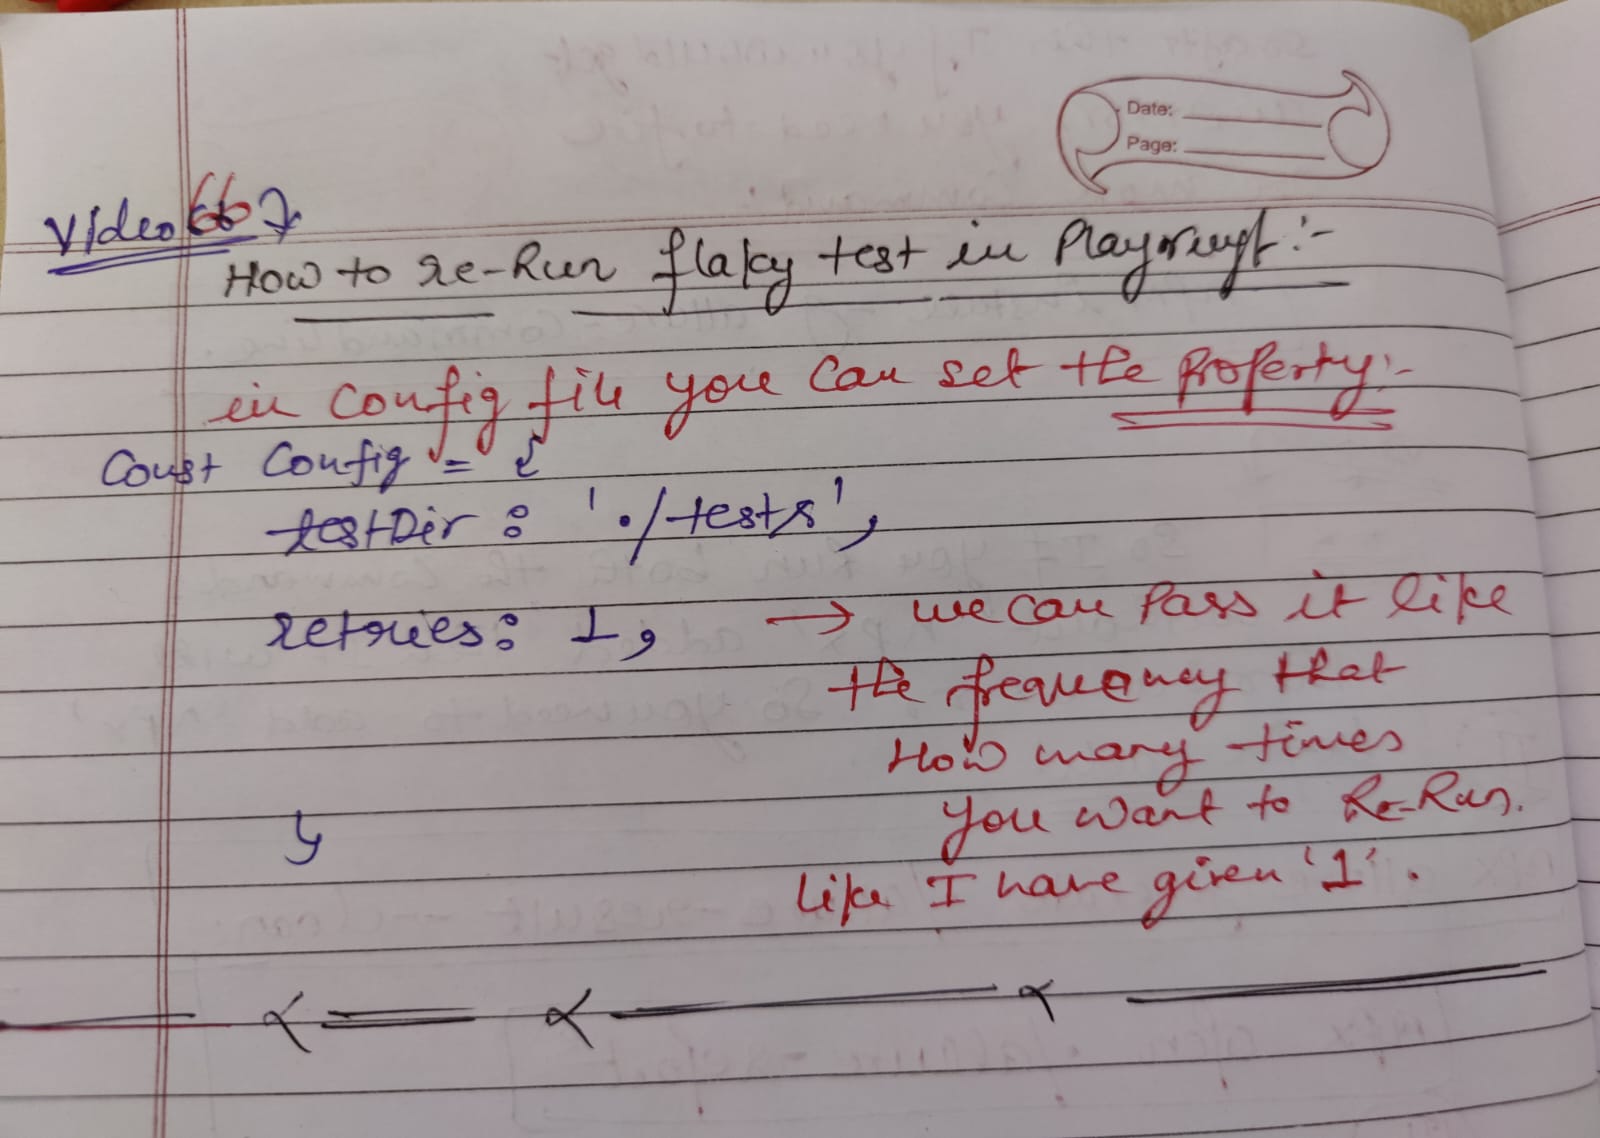 Date:
Page:
Video 66 >
How to re-Run flaky test in Playwright :-
in config file you can set the property:-
Const Config = {
testDir : './tests',
retries : 1, → we can pass it like
the frequency that
How many times
you want to Re-Run.
like I have given '1'.
}